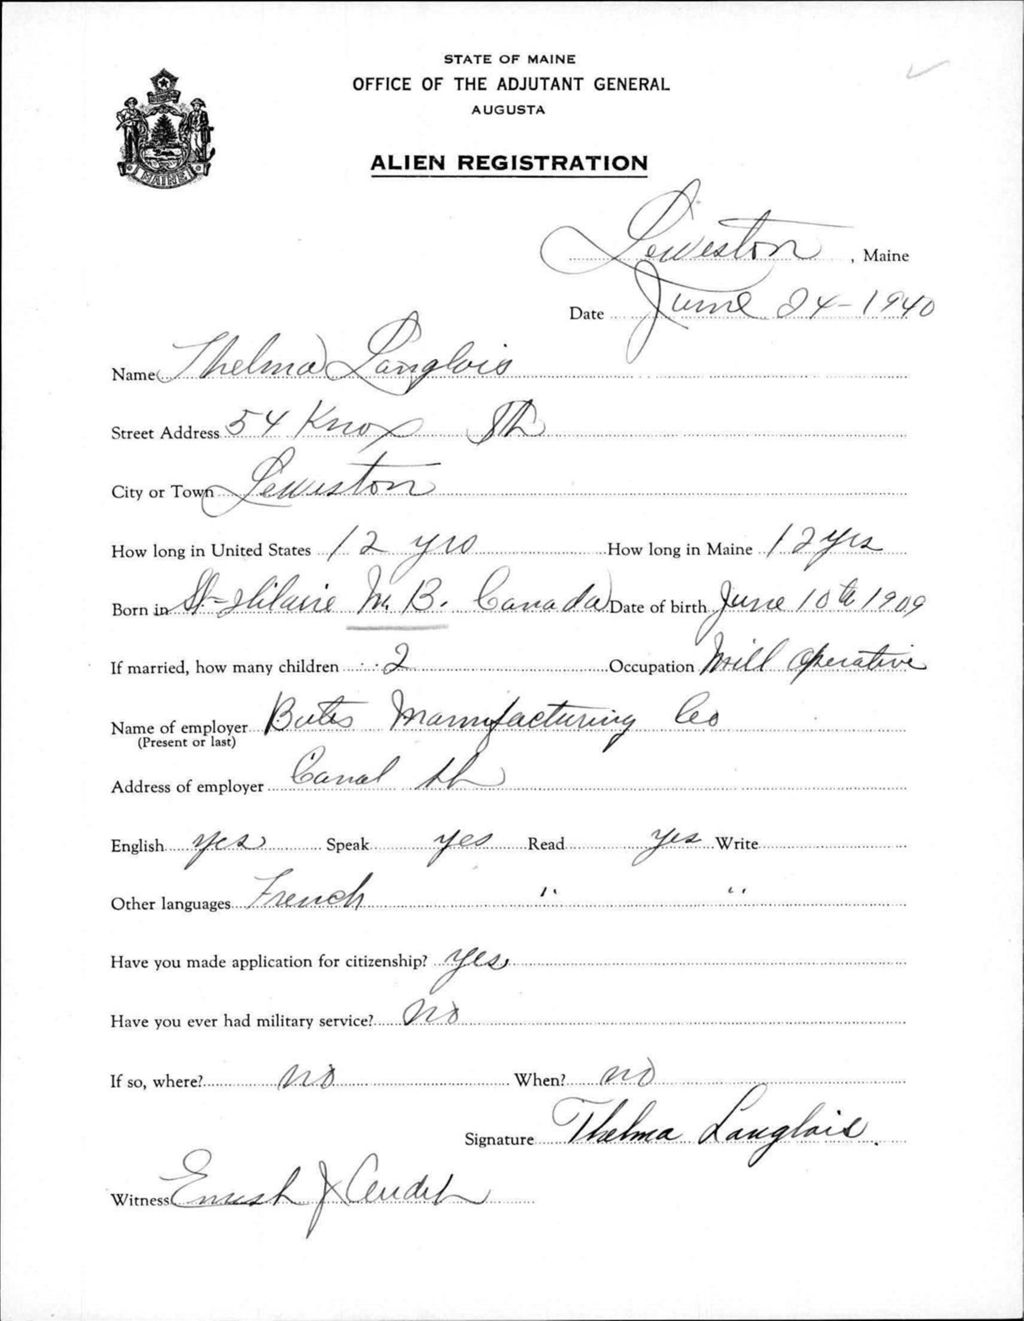 STATE OF MAINE
OFFICE OF THE ADJUTANT GENERAL
AUGUSTA
ALIEN REGISTRATION
MAINE
Lewiston, Maine
Date June 24-1940
Name Thelma Langlois
Street Address 54 Knox St
City or Town Lewiston
How long in United States 12 yrs How long in Maine 12 yrs
Born in St-Hilaire N. B. Canada Date of birth June 10th 1909
If married, how many children 2 Occupation Mill Operative
Name of employer Bates Manufacturing Co
(Present or last)
Address of employer Canal St
English yes Speak yes Read yes Write
Other languages French " "
Have you made application for citizenship? yes
Have you ever had military service? no
If so, where? no When? no
Signature Thelma Langlois.
Witness J